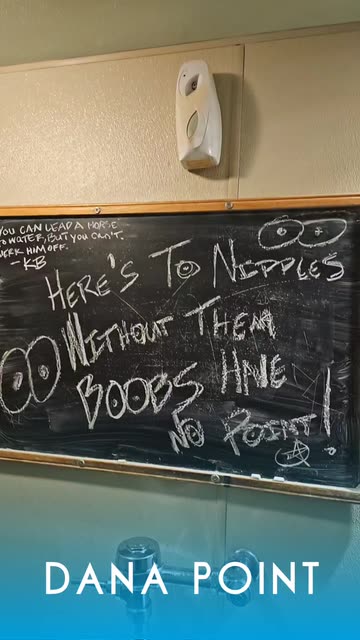 YOU CAN LEAD A HORSE
TO WATER, BUT YOU CAN'T
JERK HIM OFF.
- KB
HERE'S TO NIPPLES
WITHOUT THEM
BOOBS HAVE
NO POINT!
DANA POINT